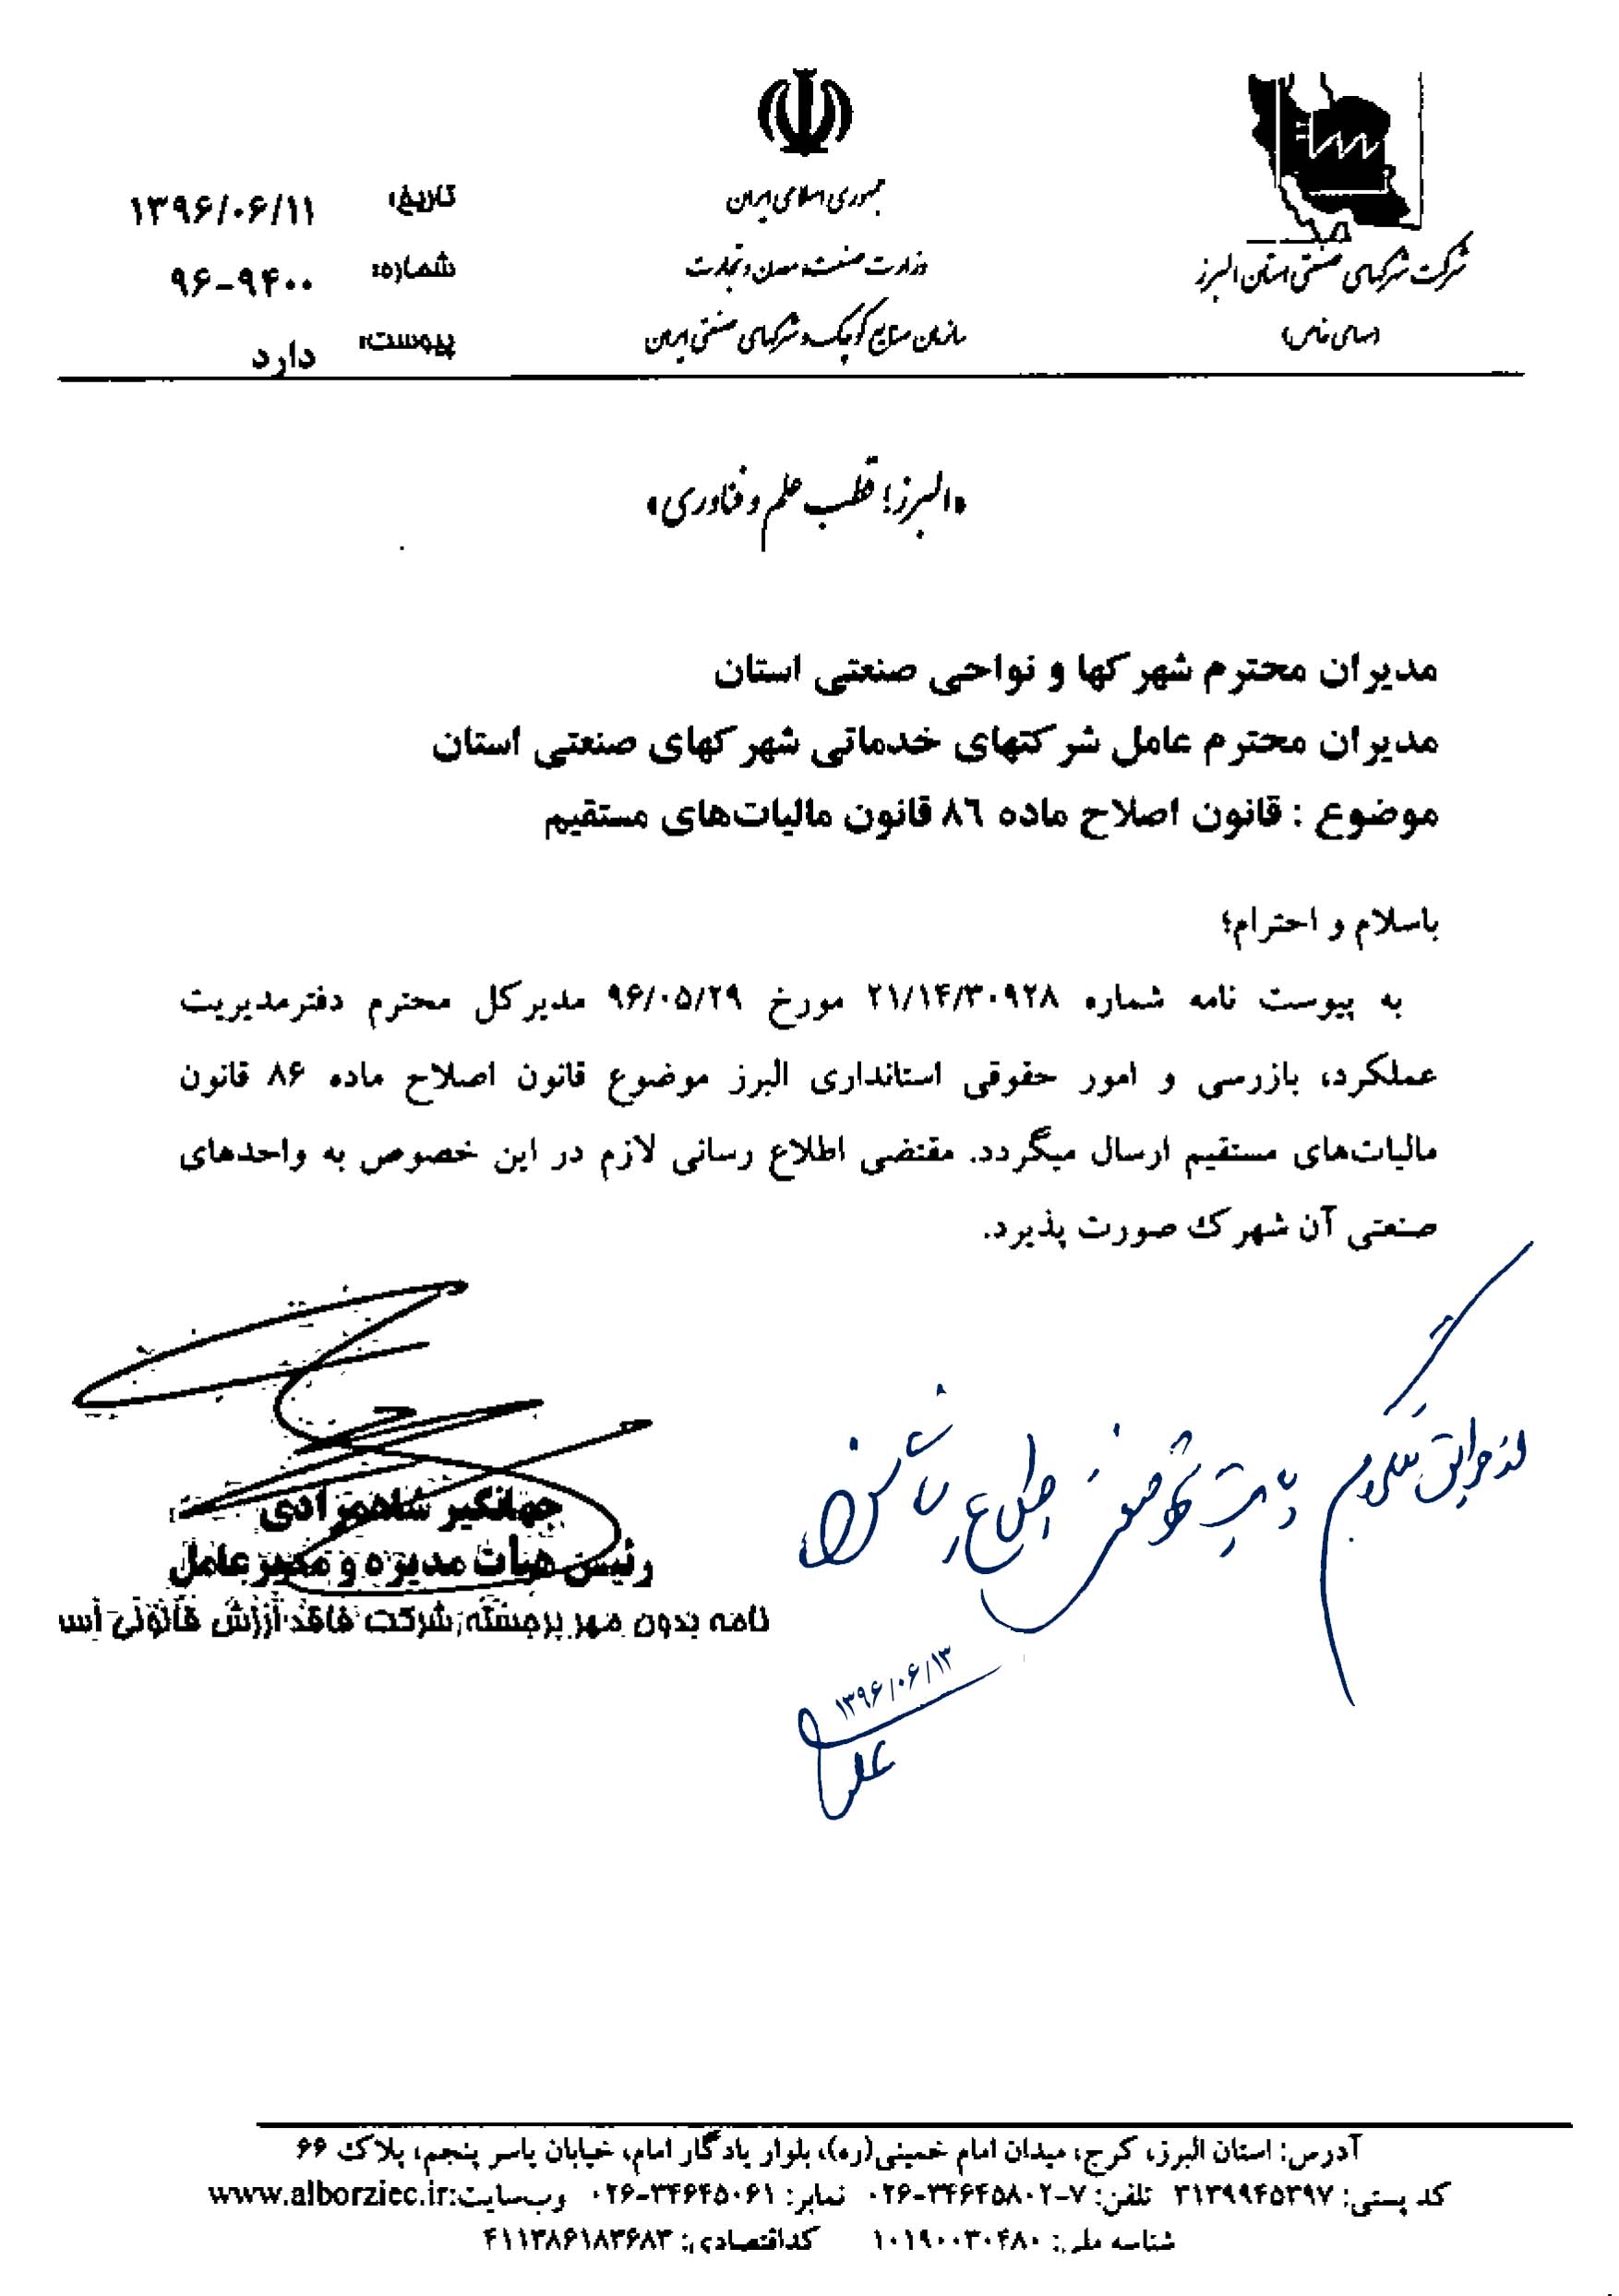 شرکت شهرکهای صنعتی استان البرز
(سهامی خاص)
جمهوری اسلامی ایران
وزارت صنعت، معدن و تجارت
سازمان صنایع کوچک و شهرکهای صنعتی ایران
تاریخ: ۱۳۹۶/۰۶/۱۱
شماره: ۹۶-۹۴۰۰
پیوست: دارد
«البرز؛ قطب علم و فناوری»
مدیران محترم شهرکها و نواحی صنعتی استان
مدیران محترم عامل شرکتهای خدماتی شهرکهای صنعتی استان
موضوع : قانون اصلاح ماده ۸٦ قانون مالیات‌های مستقیم
باسلام و احترام؛
به پیوست نامه شماره ۲۱/۱۴/۳۰۹۲۸ مورخ ۹۶/۰۵/۲۹ مدیرکل محترم دفترمدیریت
عملکرد، بازرسی و امور حقوقی استانداری البرز موضوع قانون اصلاح ماده ۸۶ قانون
مالیات‌های مستقیم ارسال میگردد. مقتضی اطلاع رسانی لازم در این خصوص به واحدهای
صنعتی آن شهرک صورت پذیرد.
جهانگیر شاهمرادی
رئیس هیأت مدیره و مدیرعامل
نامه بدون مهر برجسته شرکت فاقد ارزش قانونی اس
۱۳۹۶/۰۶/۱۳
آدرس: استان البرز، کرج، میدان امام خمینی(ره)، بلوار یادگار امام، خیابان یاسر پنجم، پلاک ۶۶
کد پستی: ۳۱۳۹۹۴۵۳۹۷ تلفن: ۷-۰۲۶-۳۴۶۴۵۸۰۲ نمابر: ۰۲۶-۳۴۶۴۵۰۶۱ وب‌سایت:www.alborziec.ir
شناسه ملی: ۱۰۱۹۰۰۳۰۴۸۰ کداقتصادی: ۴۱۱۳۸۶۱۸۳۶۸۳